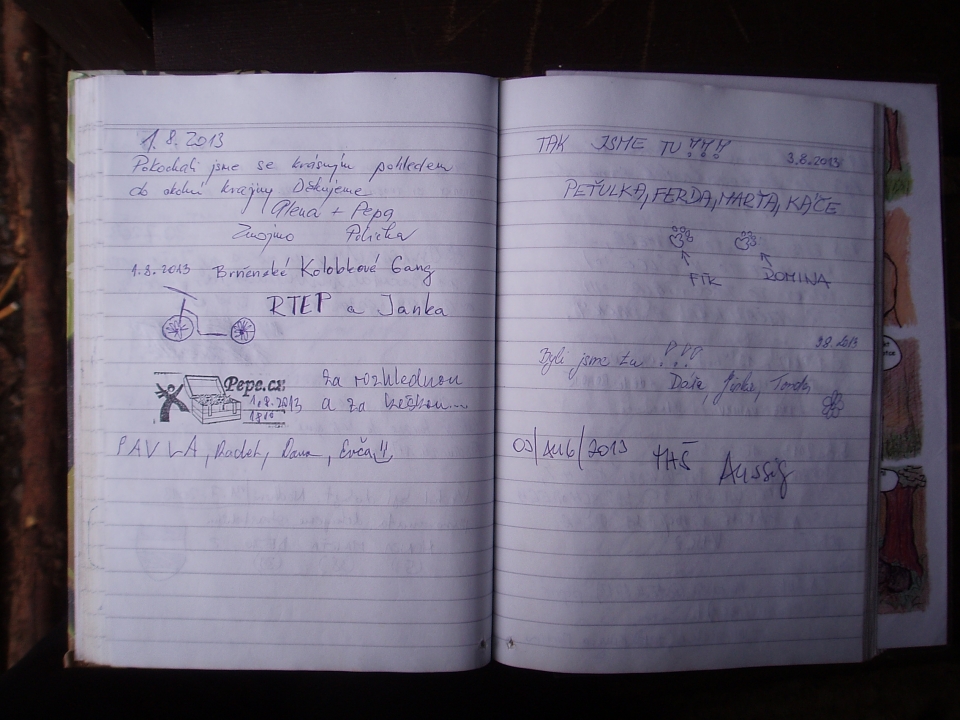 1.8.2013
Pokochali jsme se krásným pohledem
do okolní krajiny Děkujeme
Alena + Pepa
Znojmo Polička
1.8.2013 Brněnské Kolobkové Gang
RTEP a Janka
Pepe.cz
1.8.2013
za rozhlednou
a za keškou...
PAVLA, Radek, Dana, Evča
TAK JSME TU!!!
3.8.2013
PEŤULKA, FERDA, MARŤA, KÁČE
FÍK ROMINA
3.8.2013
Byli jsme tu !!!
Dáša,
03/AUG/2013
Aussig